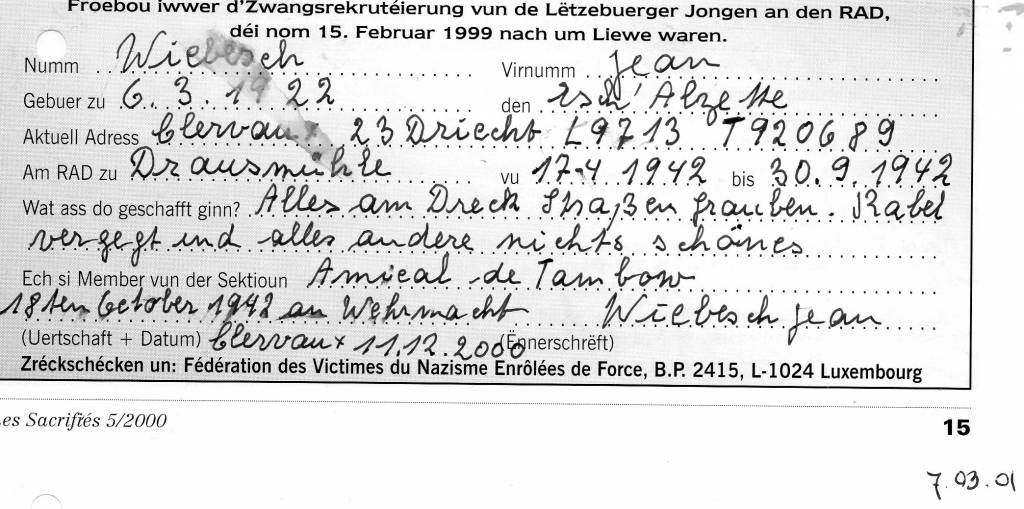 Froebou iwwer d'Zwangsrekrutéierung vun de Lëtzebuerger Jongen an den RAD,
déi nom 15. Februar 1999 nach um Liewe waren.
Numm Wiebesch Virnumm Jean
Gebuer zu 6. 3. 1922 den Esch'Alzette
Aktuell Adress Clervaux 23 Driecht L9713 T920689
Am RAD zu Drausmühle vu 17-4 1942 bis 30.9.1942
Wat ass do geschafft ginn? Alles am Dreck Straßen grauben. Kabel
vergegt und alles andere nichts schönes
Ech si Member vun der Sektioun Amical de Tambow
18ten October 1942 an Wehrmacht Wiebesch Jean
(Uertschaft + Datum) Clervaux 11.12.2000 (Ënnerschrëft)
Zréckschécken un: Fédération des Victimes du Nazisme Enrôlées de Force, B.P. 2415, L-1024 Luxembourg
es Sacrifiés 5/2000
15
7.03.01